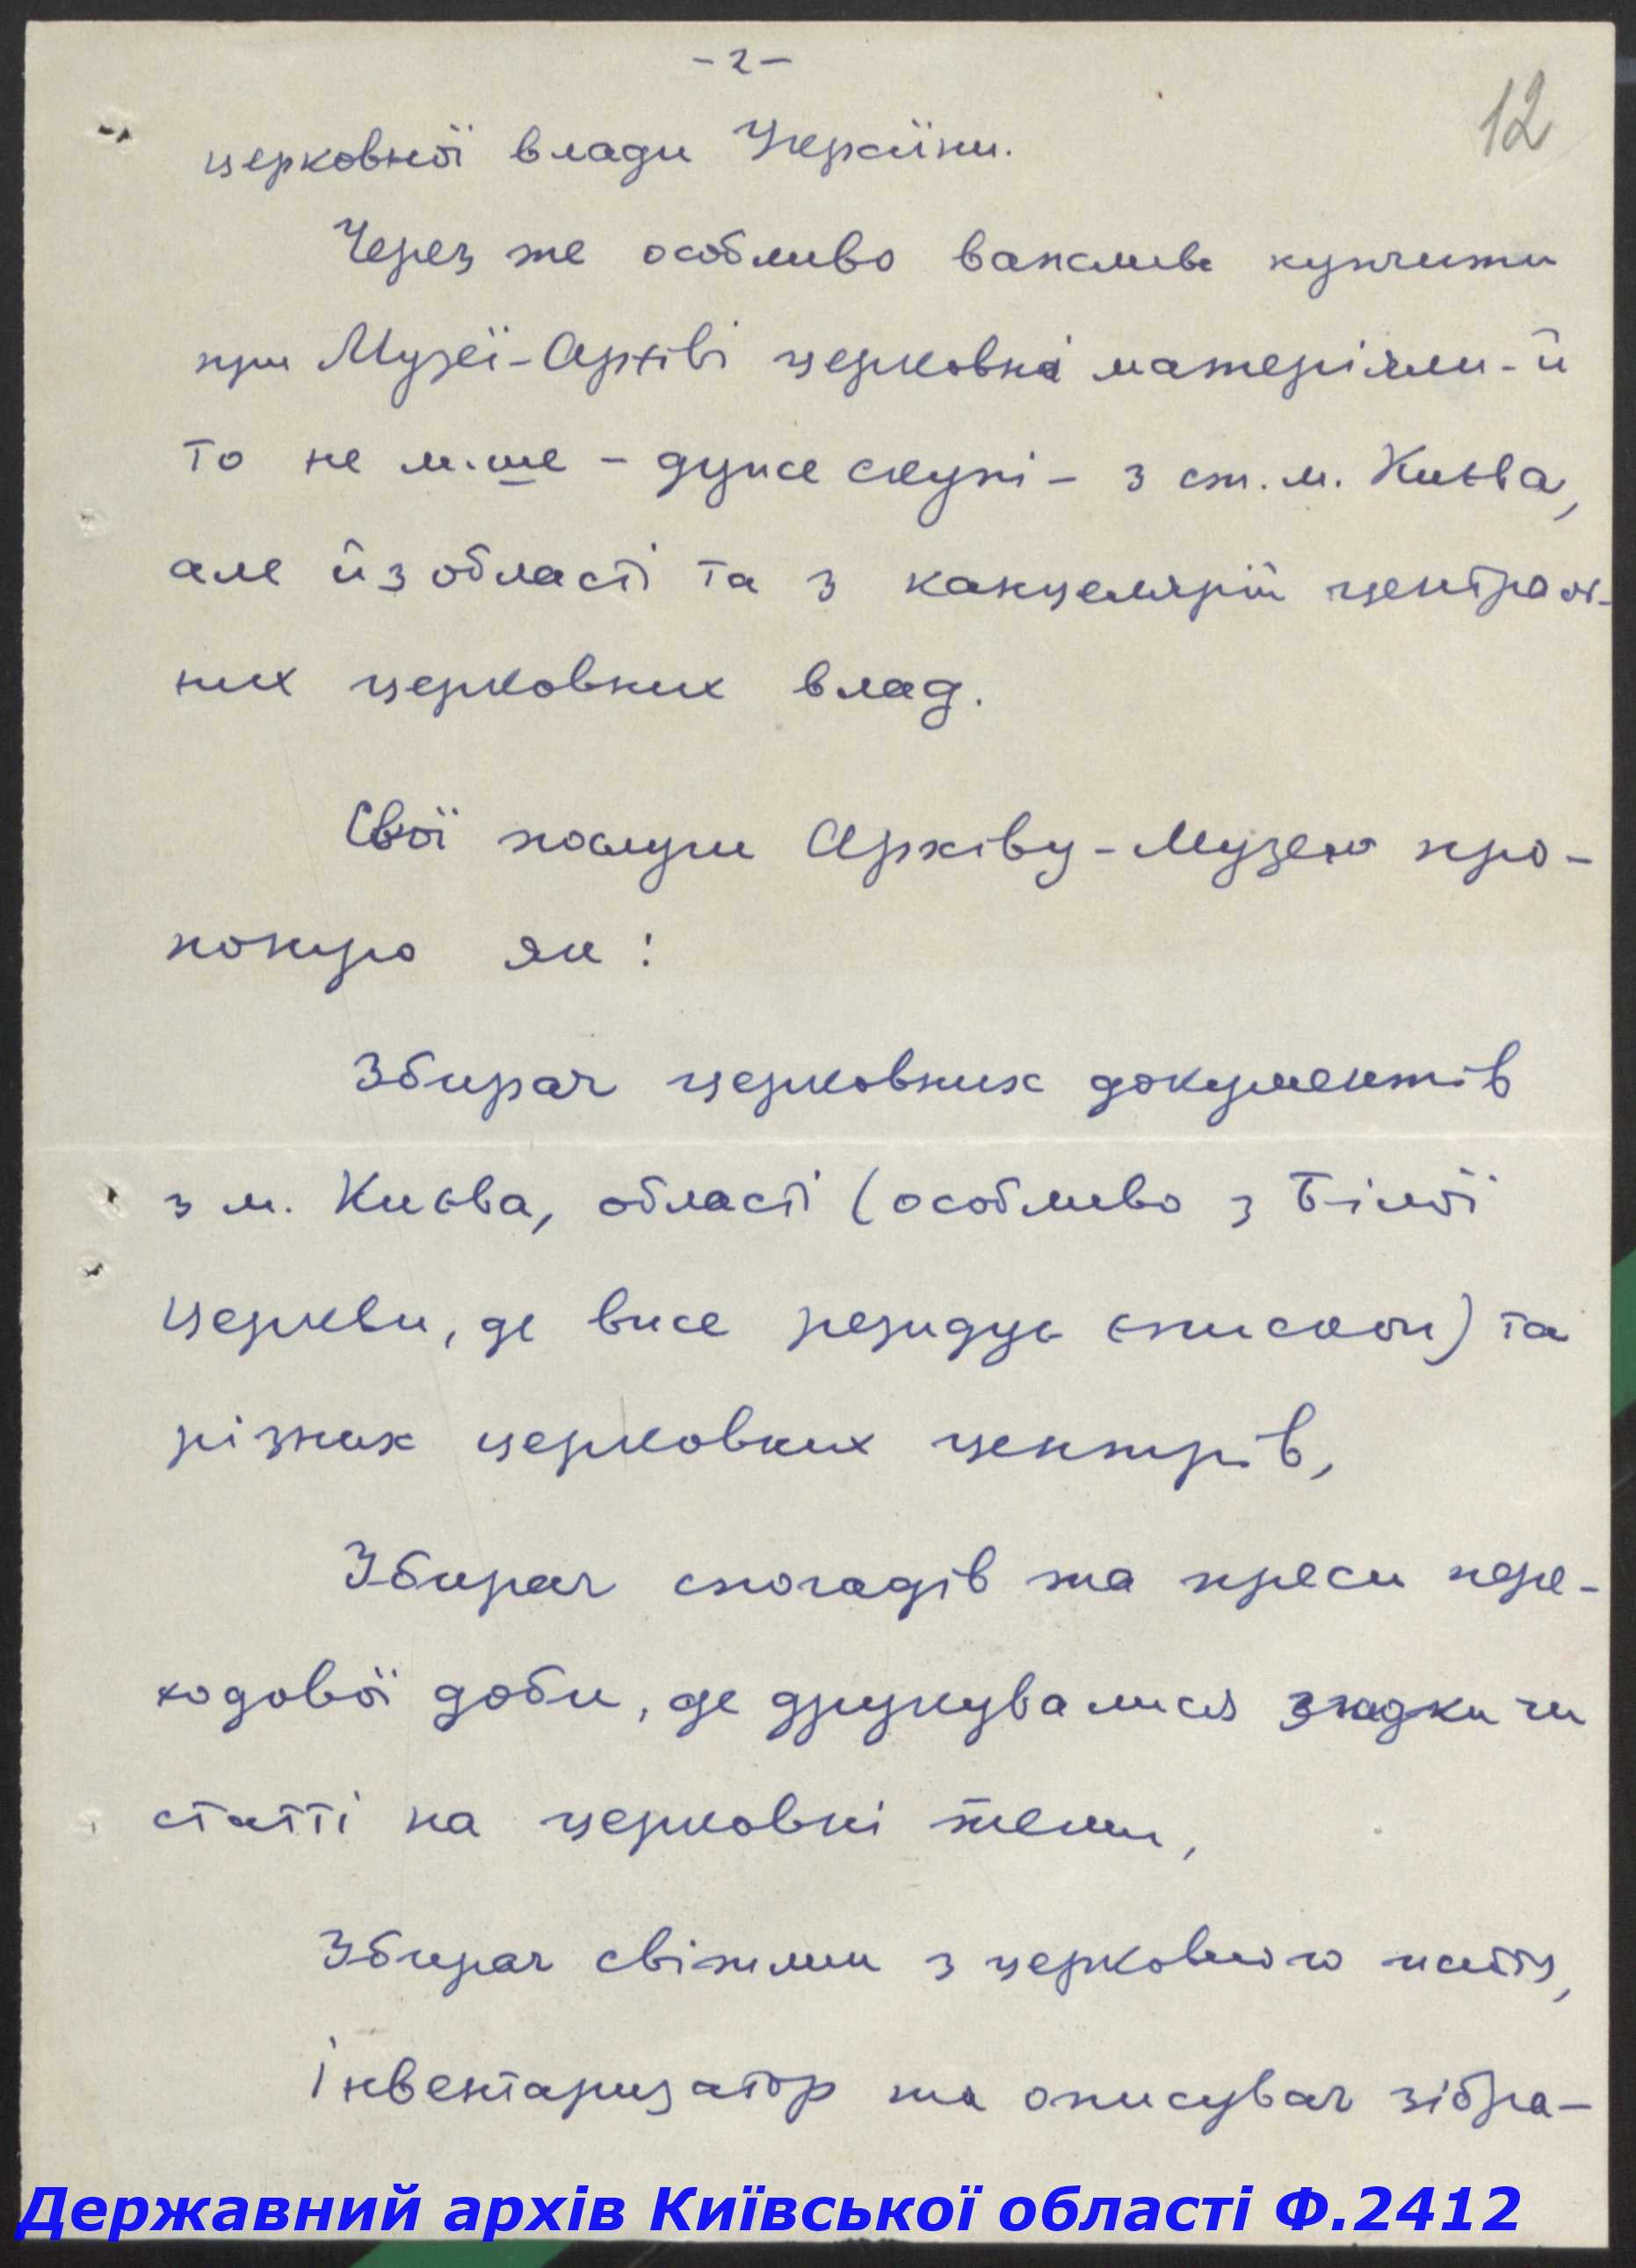 - 2 -
12
церковної влади України.
Через те особливо важливе купчити
при Музеї-Архіві церковні матеріяли - й
то не лише - дуже скупі - з ст. м. Києва,
але й з області та з канцелярій централь-
них церковних влад.
Свої послуги Архіву-Музею про-
поную як:
Збирач церковних документів
з м. Києва, області (особливо з Білої
Церкви, де вже резидує єпископ) та
різних церковних центрів,
Збирач спогадів та преси пере-
ходової доби, де друкувалися згадки чи
статті на церковні теми,
Збирач світлин з церковного життя,
Інвентаризатор та описувач зібра-
Державний архів Київської області Ф.2412